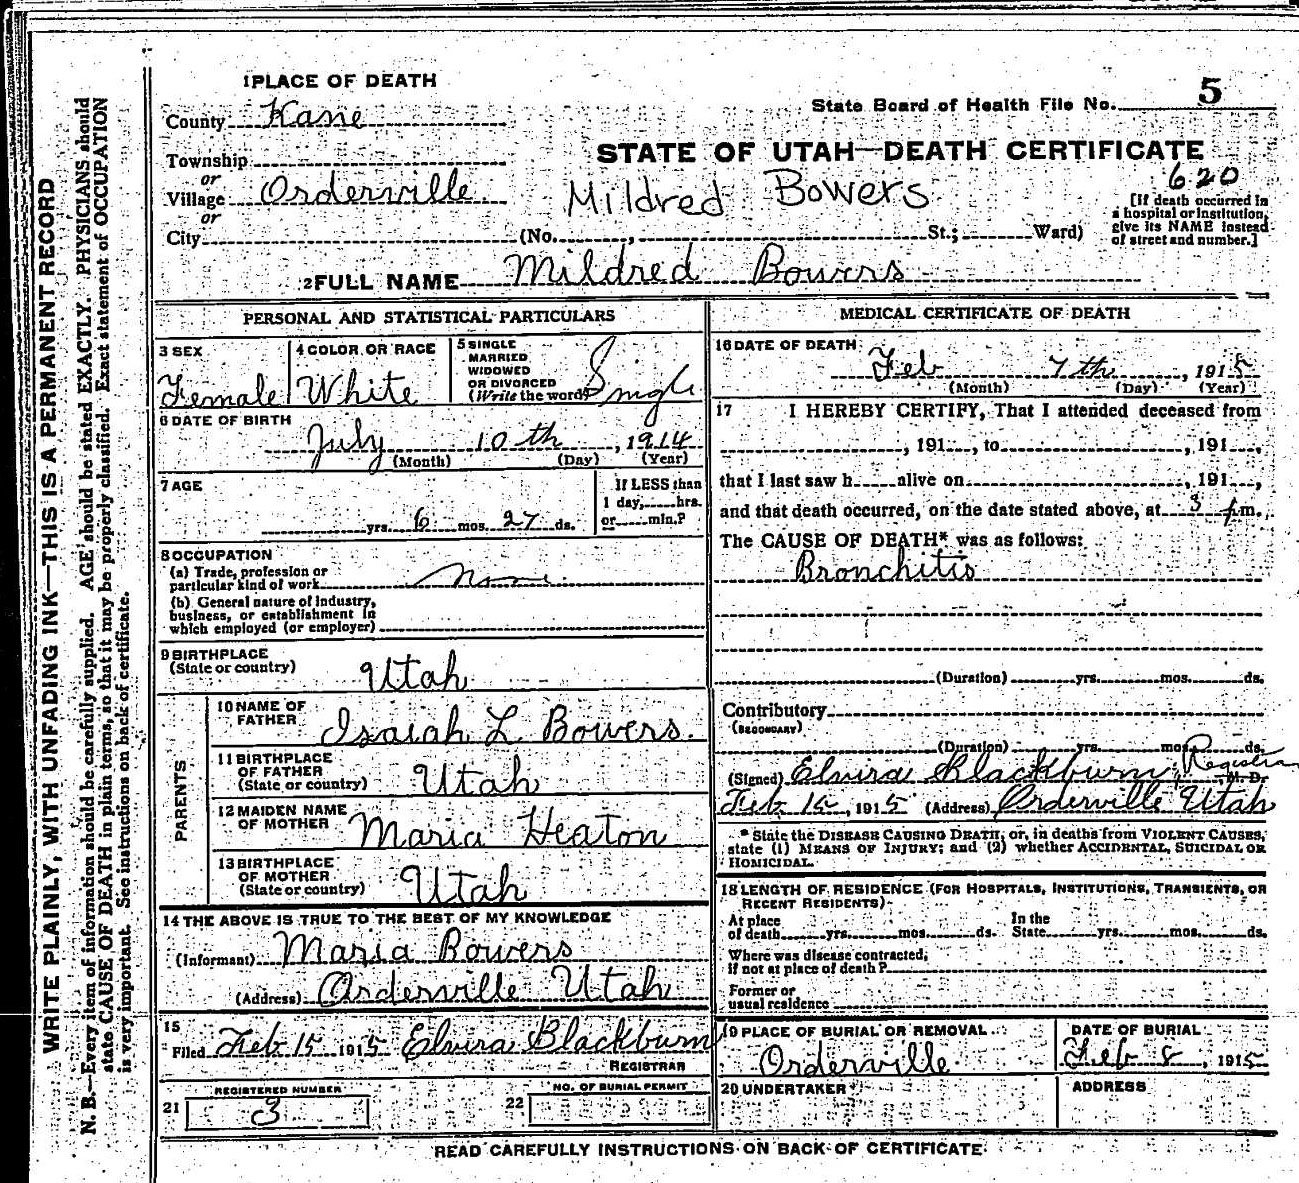 WRITE PLAINLY, WITH UNFADING INK—THIS IS A PERMANENT RECORD
N. B.—Every item of information should be carefully supplied. AGE should be stated EXACTLY. PHYSICIANS should
state CAUSE OF DEATH in plain terms, so that it may be properly classified. Exact statement of OCCUPATION
is very important. See instructions on back of certificate.
1 PLACE OF DEATH
State Board of Health File No. 5
County Kane
STATE OF UTAH—DEATH CERTIFICATE
Township
or
Village Orderville
Mildred Bowers
620
or
City (No. , St.; Ward)
[If death occurred in
a hospital or institution,
give its NAME instead
of street and number.]
2 FULL NAME Mildred Bowers
PERSONAL AND STATISTICAL PARTICULARS
3 SEX Female
4 COLOR OR RACE White
5 SINGLE
MARRIED
WIDOWED
OR DIVORCED
(Write the word) Single
6 DATE OF BIRTH
July 10th, 1914
(Month) (Day) (Year)
7 AGE
yrs. 6 mos. 27 ds.
If LESS than
1 day, hrs.
or min.?
8 OCCUPATION
(a) Trade, profession or
particular kind of work None
(b) General nature of industry,
business, or establishment in
which employed (or employer)
9 BIRTHPLACE
(State or country) Utah
PARENTS
10 NAME OF
FATHER Isaiah L Bowers.
11 BIRTHPLACE
OF FATHER
(State or country) Utah
12 MAIDEN NAME
OF MOTHER Maria Heaton
13 BIRTHPLACE
OF MOTHER
(State or country) Utah
14 THE ABOVE IS TRUE TO THE BEST OF MY KNOWLEDGE
(Informant) Maria Bowers
(Address) Orderville Utah
15
Filed Feb 15 1915 Elvira Blackburn
REGISTRAR
21 REGISTERED NUMBER
3
22 NO. OF BURIAL PERMIT
MEDICAL CERTIFICATE OF DEATH
16 DATE OF DEATH
Feb 7th, 1915
(Month) (Day) (Year)
17 I HEREBY CERTIFY, That I attended deceased from
, 191 , to , 191 ,
that I last saw h alive on , 191 ,
and that death occurred, on the date stated above, at 3 p m.
The CAUSE OF DEATH* was as follows:
Bronchitis
(Duration) yrs. mos. ds.
Contributory
(SECONDARY)
(Duration) yrs. mos. ds.
(Signed) Elvira Blackburn, Registrar M. D.
Feb 15, 1915 (Address) Orderville Utah
* State the DISEASE CAUSING DEATH, or, in deaths from VIOLENT CAUSES,
state (1) MEANS OF INJURY; and (2) whether ACCIDENTAL, SUICIDAL OR
HOMICIDAL.
18 LENGTH OF RESIDENCE (FOR HOSPITALS, INSTITUTIONS, TRANSIENTS, OR
RECENT RESIDENTS)
At place
of death yrs. mos. ds.
In the
State yrs. mos. ds.
Where was disease contracted,
if not at place of death?
Former or
usual residence
19 PLACE OF BURIAL OR REMOVAL
Orderville
DATE OF BURIAL
Feb 8, 1915
20 UNDERTAKER
ADDRESS
READ CAREFULLY INSTRUCTIONS ON BACK OF CERTIFICATE